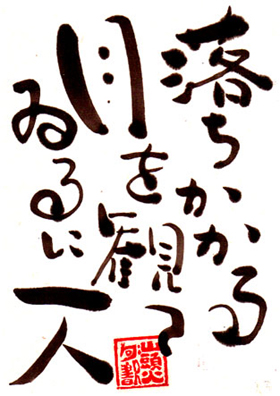 落ちかかる
月を観て
ゐるに一人
山頭火